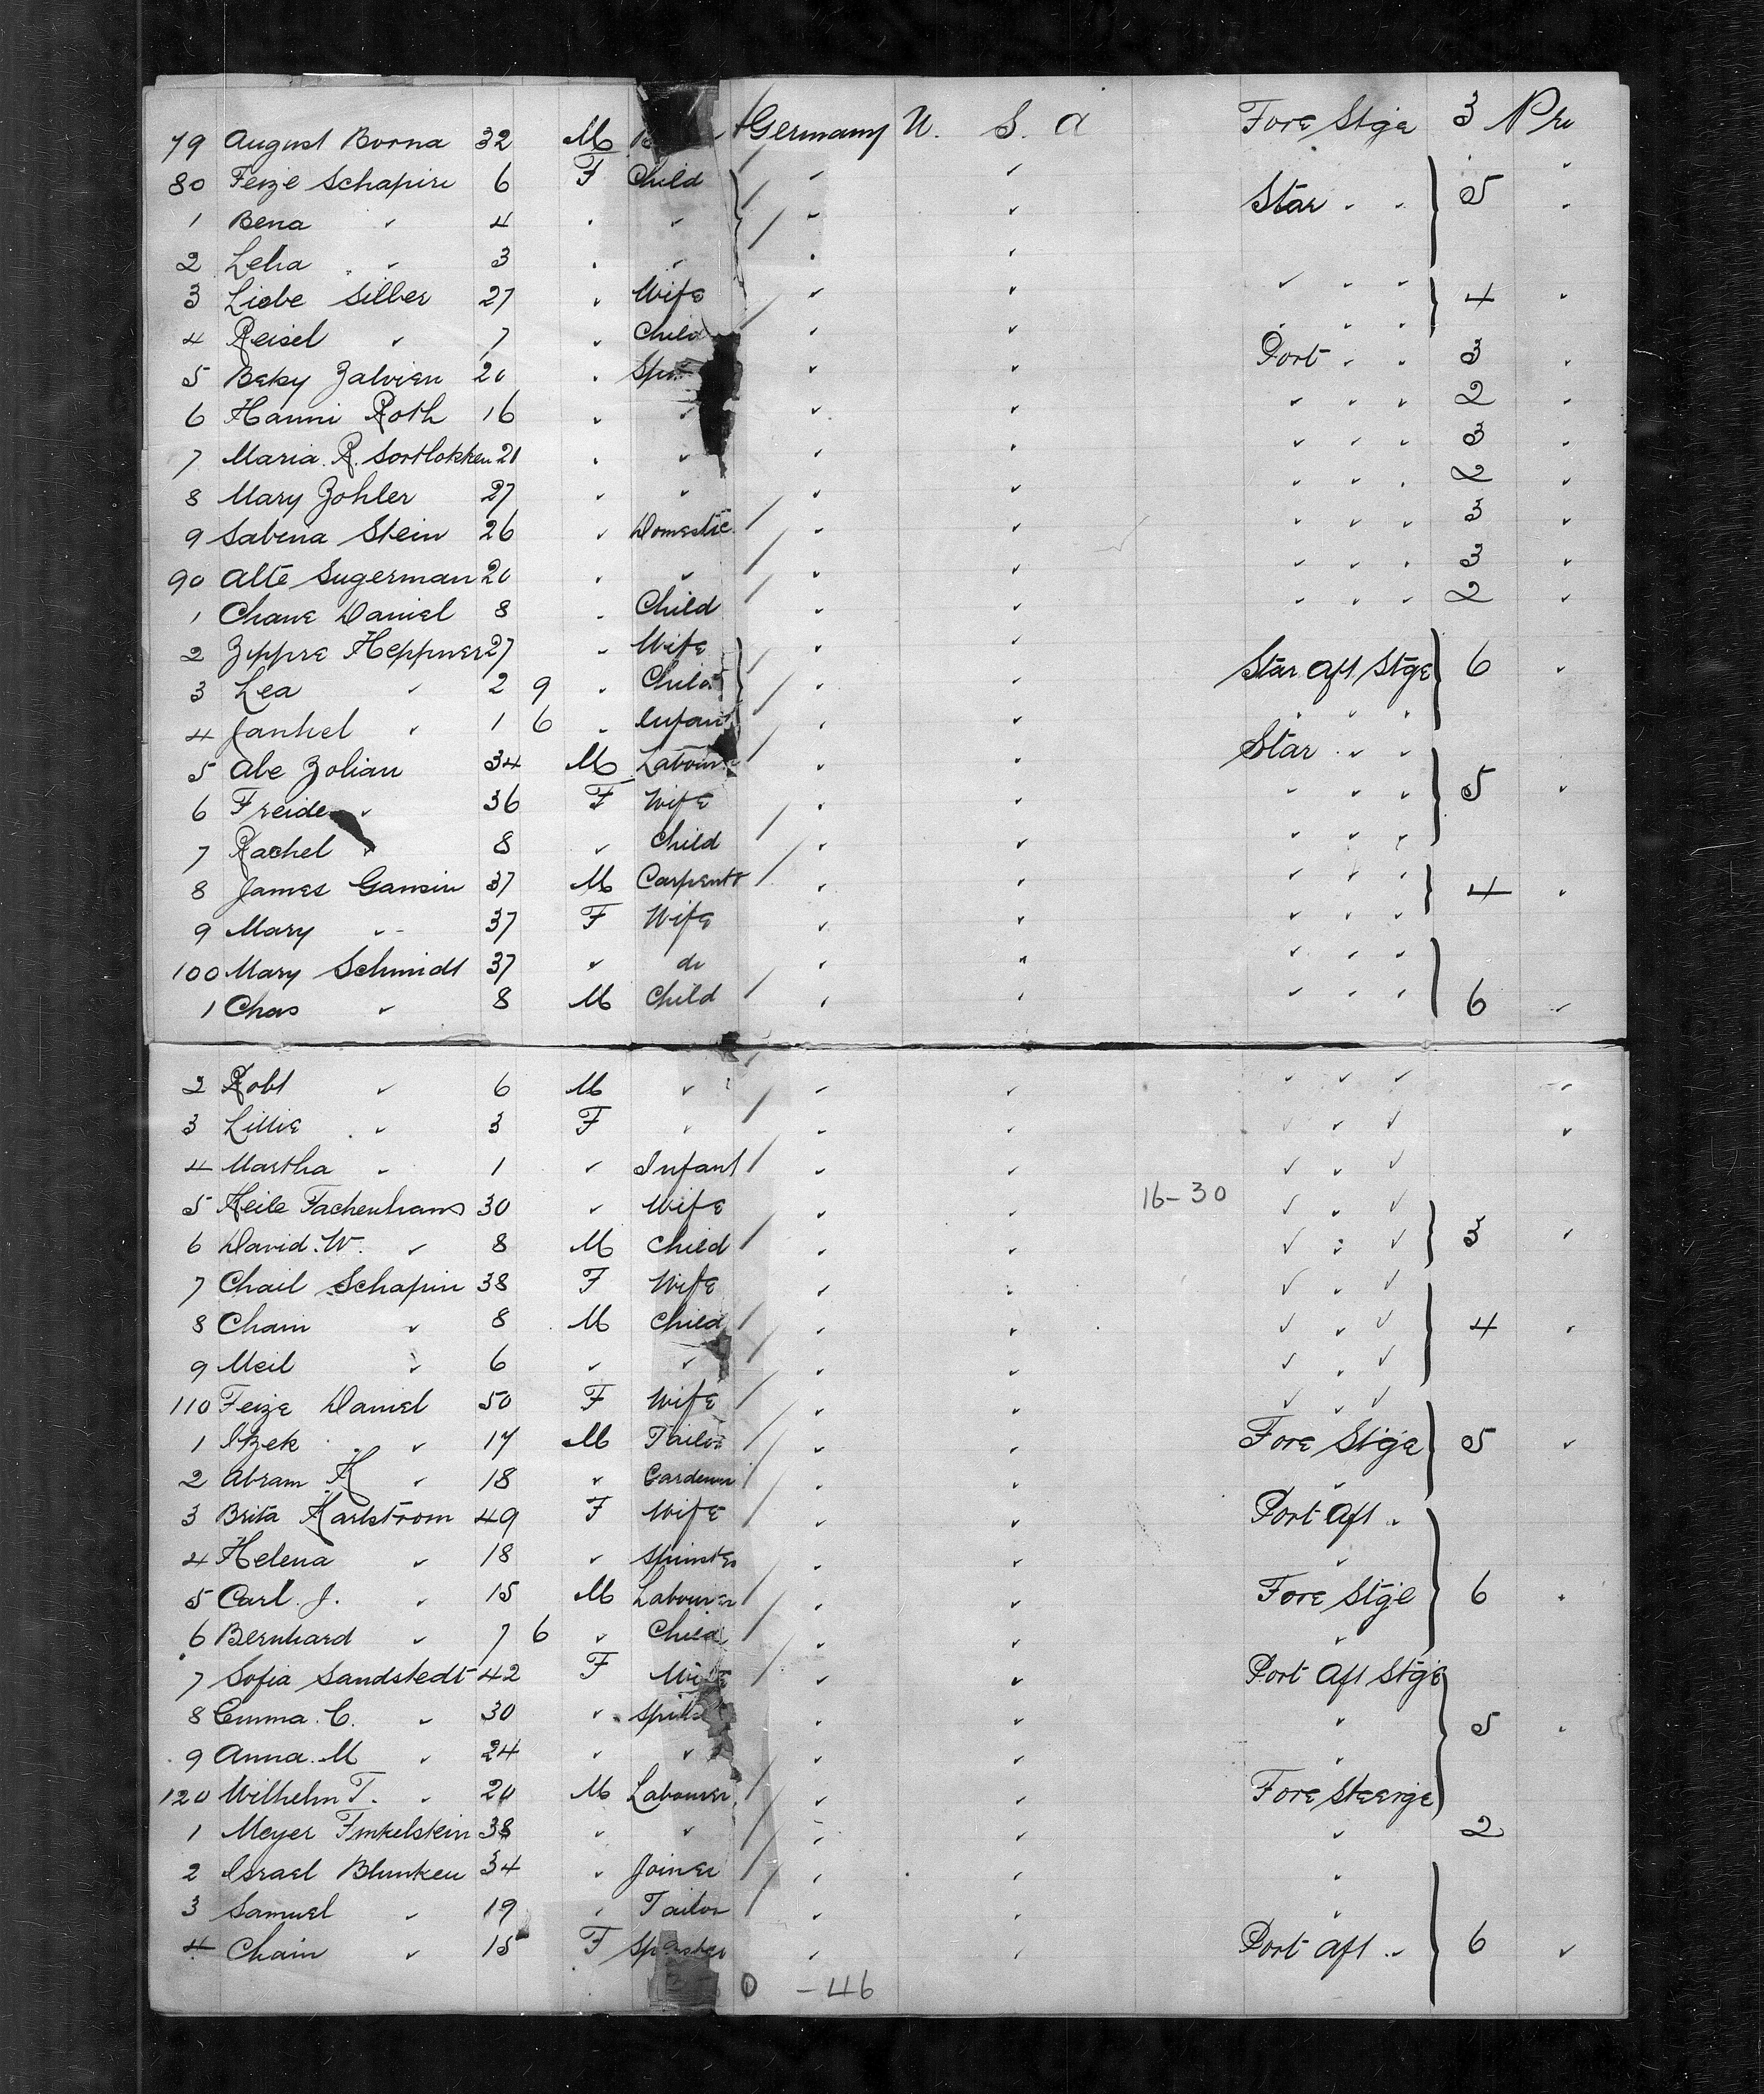 79 August Borna 32 M Germany U. S. A Fore Stge 3 N Yo
80 Feize Schapire 6 F Child " "
1 Bena " 4 " " " " Star " " 5 "
2 Leha " 3 " " " "
3 Liebe Silber 27 " Wife " " " " " 4 "
4 Reisel " 7 " Child " " " " "
5 Beky Zalvien 20 " " " Port " " 3 "
6 Hanni Roth 16 " " " " " " " 2 "
7 Maria R. Sortlokken 21 " " " " " " " 3 "
8 Mary Zohler 27 " " " " " " " 2 "
9 Sabina Stein 26 " Domestic " " " " " 3 "
90 Alte Sugerman 20 " " " " " " " 3 "
1 Chane Daniel 8 " Child " " " " " 2 "
2 Zippre Heppner 27 " Wife " "
3 Lea " 2 9 " Child " " Star Aft Stge 6 "
4 Jankel " 1 6 " Infant " " " " "
5 Abe Zolian 34 M Labour " " Star " "
6 Freide " 36 F Wife " " " " " 5 "
7 Rachel " 8 " Child " " " " "
8 James Gansin 37 M Carpentr " " " " " 4 "
9 Mary " 37 F Wife " " " " "
100 Mary Schmidt 37 " do " " " " "
1 Chas " 8 M Child " " " " " 6 "
2 Robt " 6 M " " " " " " "
3 Lillie " 3 F " " " " " " "
4 Martha " 1 " Infant " " " " "
5 Keile Fachenhans 30 " Wife " " 16-30 " " "
6 David. W. " 8 M Child " " " " " 3 "
7 Chail Schapiri 38 F Wife " " " " "
8 Chain " 8 M Child " " " " " 4 "
9 Meil " 6 " " " " " " "
110 Feize Daniel 50 F Wife " " " " "
1 Izek " 17 M Tailor " " Fore Stge 5 "
2 Abram K " 18 " Gardener " " "
3 Brita Karlstrom 49 F Wife " " Port Aft "
4 Helena " 18 " Spinster " " "
5 Carl. J. " 15 M Labourer " " Fore Stge 6 "
6 Bernhard " 7 6 " Child " " "
7 Sofia Sandstedt 42 F Wife " " Port Aft Stge
8 Emma. C. " 30 " " " " 5 "
9 Anna. M " 24 " " " " "
120 Wilhelm T. " 20 M Labourer " " Fore Steerge
1 Meyer Finkelstein 38 " " " " " 2
2 Israel Blunken 34 " Joiner " " "
3 Samuel " 19 " Tailor " " "
4 Chain " 15 F Spinster " " Port Aft " 6 "
0 - 46